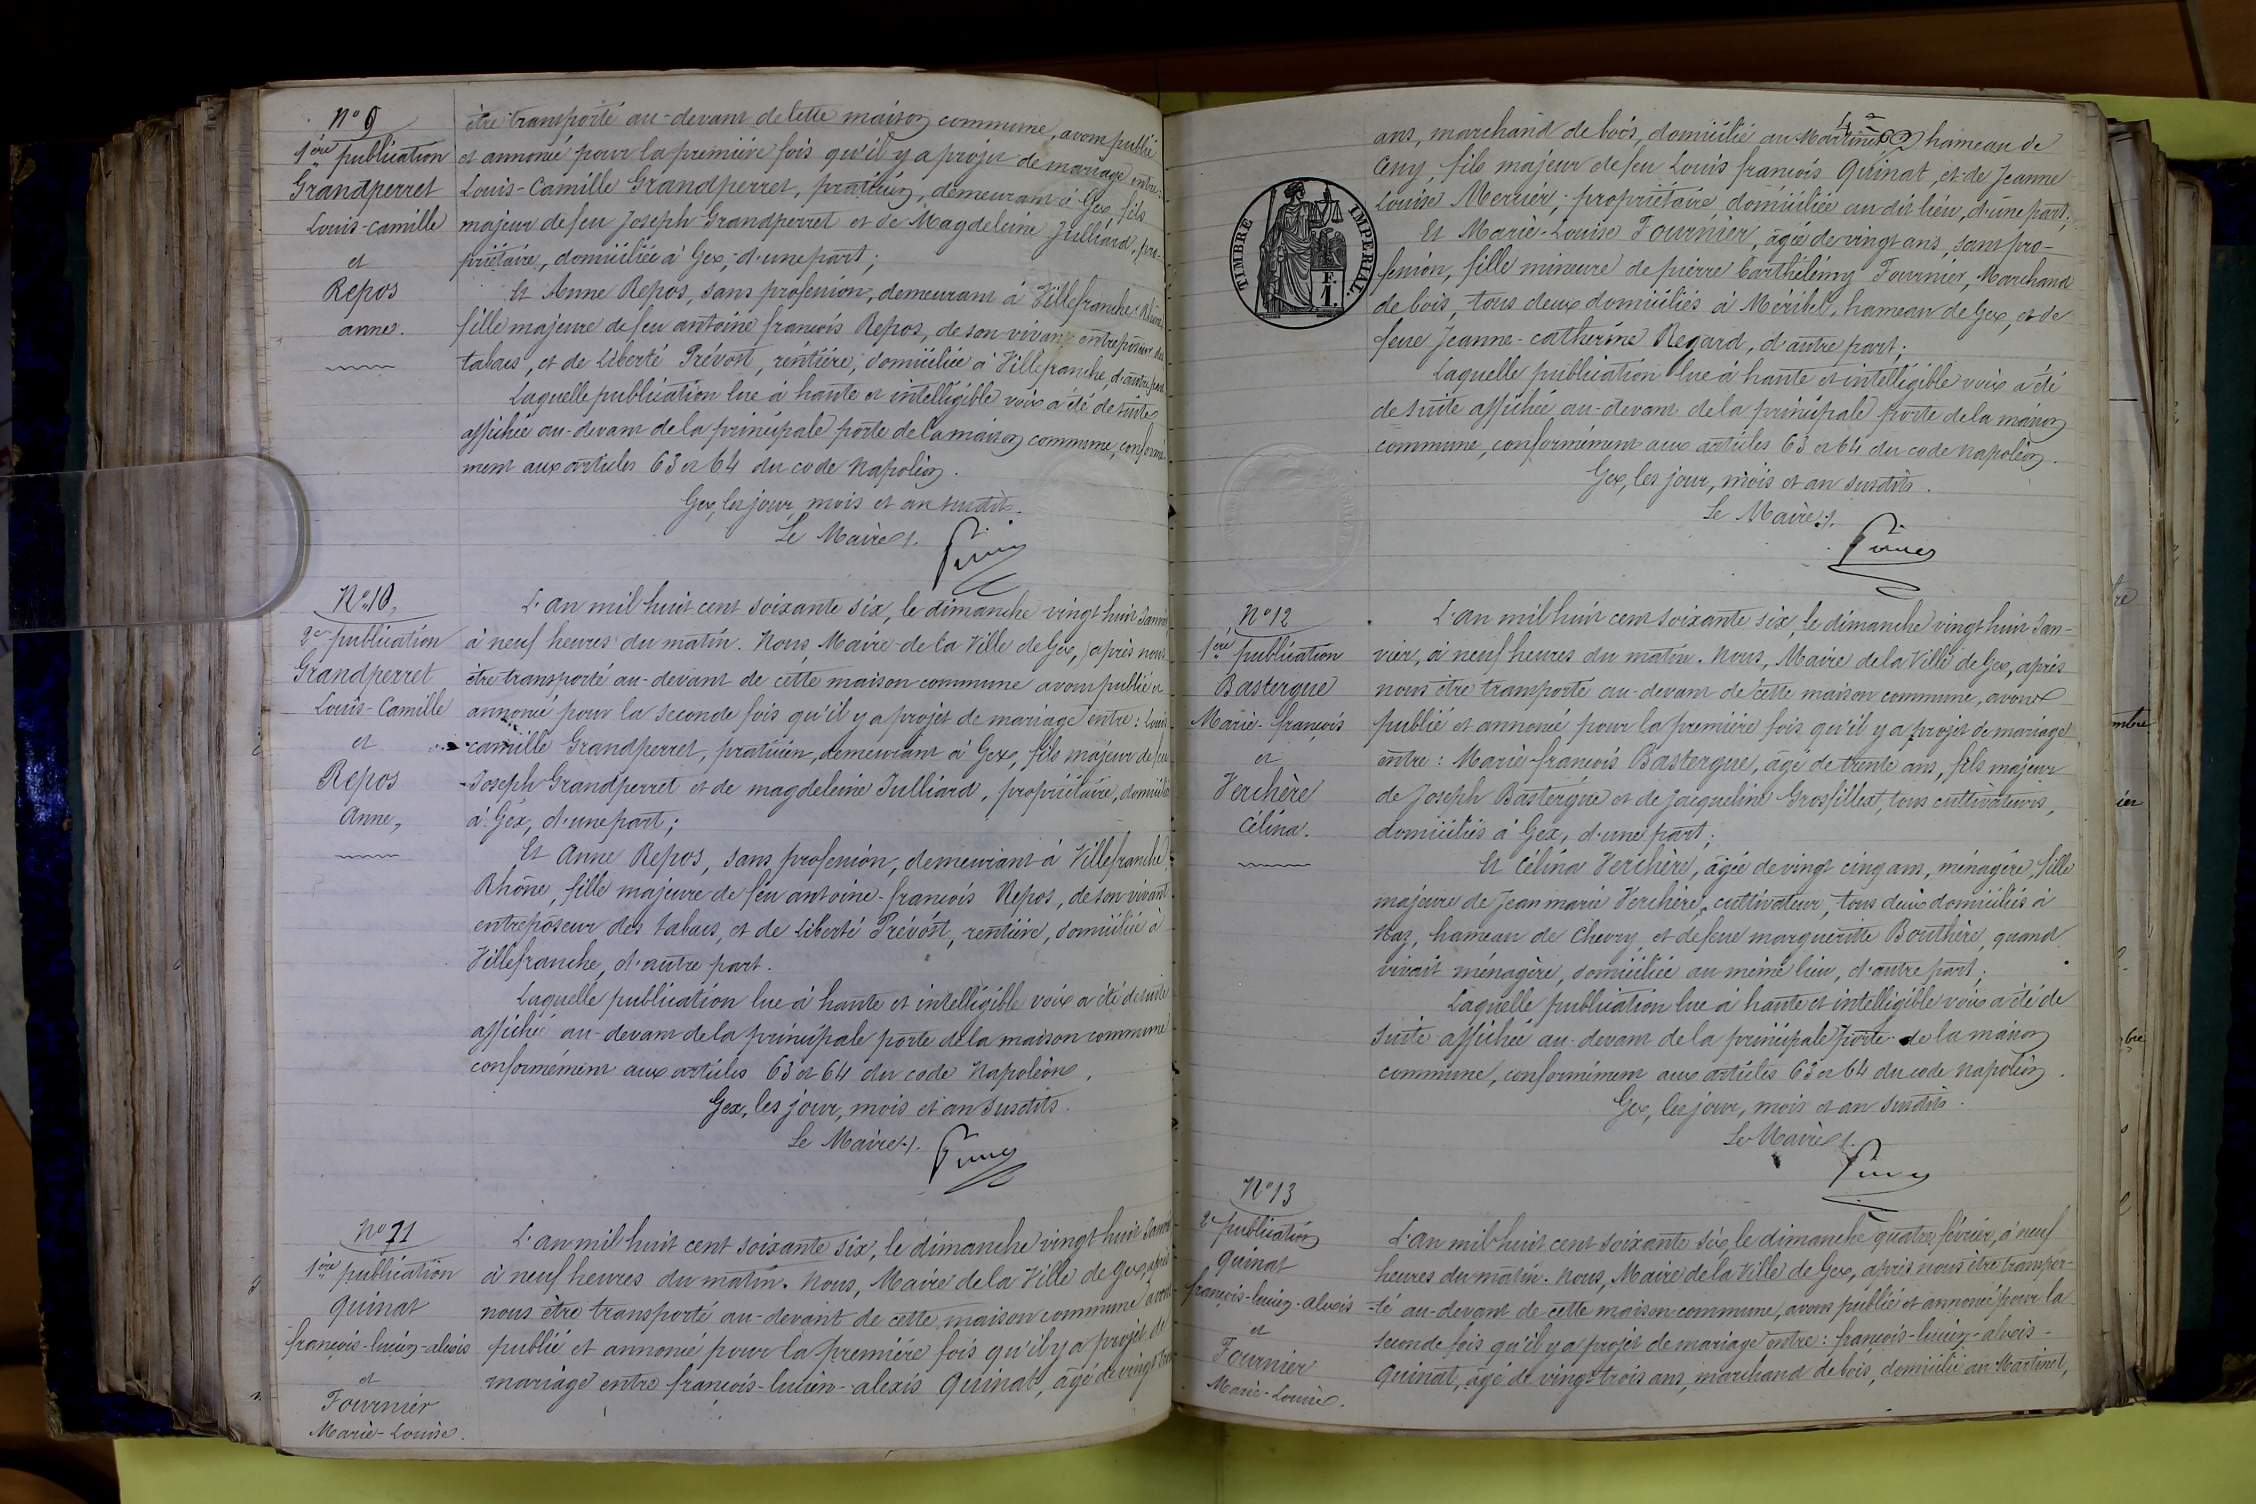 N° 9
1ère publication
Grandperret
Louis-Camille
et
Repos
anne.
être transporté au-devant de cette maison commune, avons publié
et annoncé pour la première fois qu'il y a projet de mariage entre:
Louis-Camille Grandperret, praticien, demeurant à Gex, fils
majeur de feu Joseph Grandperret et de Magdeleine Julliard, pro-
priétaire, domiciliée à Gex, d'une part;
Et Anne Repos, sans profession, demeurant à Villefranche, Rhône
fille majeure de feu antoine françois Repos, de son vivant entreposeur des
tabacs, et de Liberté Prévost, rentière, domiciliée à Villefranche, d'autre part
Laquelle publication lue à haute et intelligible voix a été de suite
affichée au-devant de la principale porte de la maison commune, conformé-
ment aux articles 63 et 64 du code Napoléon.
Gex, les jour, mois et an susdits.
Le Maire
N° 10,
2e publication
Grandperret
Louis-Camille
et
Repos
Anne,
L'an mil huit cent soixante six, le dimanche vingt huit Janvier
à neuf heures du matin. Nous, Maire de la Ville de Gex, après nous
être transporté au-devant de cette maison commune avons publié et
annoncé pour la seconde fois qu'il y a projet de mariage entre: Louis
camille Grandperret, praticien, demeurant à Gex, fils majeur de feu
Joseph Grandperret et de magdeleine Julliard, propriétaire, domiciliée
à Gex, d'une part;
Et Anne Repos, sans profession, demeurant à Villefranche,
Rhône, fille majeure de feu antoine-françois Repos, de son vivant
entreposeur des tabacs, et de Liberté Prévost, rentière, domiciliée à
Villefranche, d'autre part.
Laquelle publication lue à haute et intelligible voix a été de suite
affichée au-devant de la principale porte de la maison commune
conformément aux articles 63 et 64 du code Napoléon.
Gex, les jour, mois et an susdits.
Le Maire
N° 11
1ère publication
Quinat
françois-lucien-alexis
et
Fournier
Marie-Louise.
L'an mil huit cent soixante six, le dimanche vingt huit Janvier
à neuf heures du matin. Nous, Maire de la Ville de Gex, après
nous être transporté au-devant de cette maison commune avons
publié et annoncé pour la première fois qu'il y a projet de
mariage entre françois-lucien-alexis Quinat, âgé de vingt trois
ans, marchand de bois, domicilié au Martinet hameau de
Cessy, fils majeur de feu Louis françois Quinat, et de Jeanne
Louise Mercier, propriétaire, domiciliée au dit lieu, d'une part;
Et Marie-Louise Fournier, âgée de vingt ans, sans pro-
fession, fille mineure de pierre barthélémy Fournier, Marchand
de bois, tous deux domiciliés à Méribel, hameau de Gex, et de
feue Jeanne-catherine Regard, d'autre part;
Laquelle publication lue à haute et intelligible voix a été
de suite affichée au-devant de la principale porte de la maison
commune, conformément aux articles 63 et 64 du code napoléon.
Gex, les jour, mois et an susdits.
Le Maire
TIMBRE IMPERIAL.
F
1.
N° 12
1ère publication
Bastergue
Marie-françois
et
Verchère
Célina.
L'an mil huit cent soixante six, le dimanche vingt huit Jan-
vier, à neuf heures du matin. Nous, Maire de la Ville de Gex, après
nous être transporté au-devant de cette maison commune, avons
publié et annoncé pour la première fois qu'il y a projet de mariage
entre: Marie-françois Bastergue, âgé de trente ans, fils majeur
de Joseph Bastergue et de Jacqueline Grosfillex, tous cultivateurs,
domiciliés à Gex, d'une part;
Et Célina Verchère, âgée de vingt cinq ans, ménagère, fille
majeure de Jean marie Verchère, cultivateur, tous deux domiciliés à
Naz, hameau de Chevry, et de feue marguerite Bouthère, quand
vivait ménagère, domiciliée au même lieu, d'autre part;
Laquelle publication lue à haute et intelligible voix a été de
suite affichée au-devant de la principale porte de la maison
commune, conformément aux articles 63 et 64 du code napoléon.
Gex, les jour, mois et an susdits.
Le Maire
N° 13
2e publication
Quinat
françois-lucien-alexis
et
Fournier
Marie-Louise.
L'an mil huit cent soixante six, le dimanche quatre février, à neuf
heures du matin. Nous, Maire de la Ville de Gex, après nous être transpor-
-té au-devant de cette maison commune, avons publié et annoncé pour la
seconde fois qu'il y a projet de mariage entre: françois-lucien-alexis-
Quinat, âgé de vingt-trois ans, marchand de bois, domicilié au Martinet,